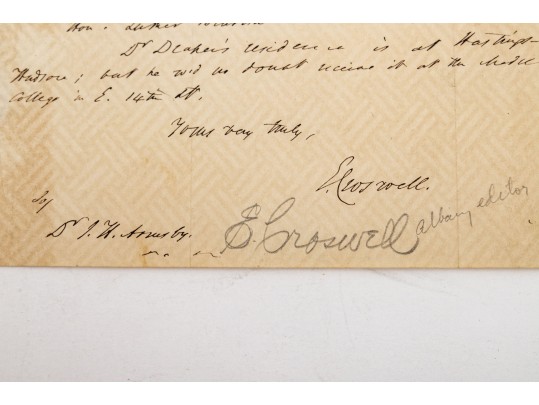 Hon. Luther
Dr Draper's residence is at Hastings-
Hudson; but he wd no doubt receive it at the Medl
College in E. 14th St.
Yours very truly,
E. Croswell.
To/
Dr J. H. Armsby.
E. Croswell albany editor